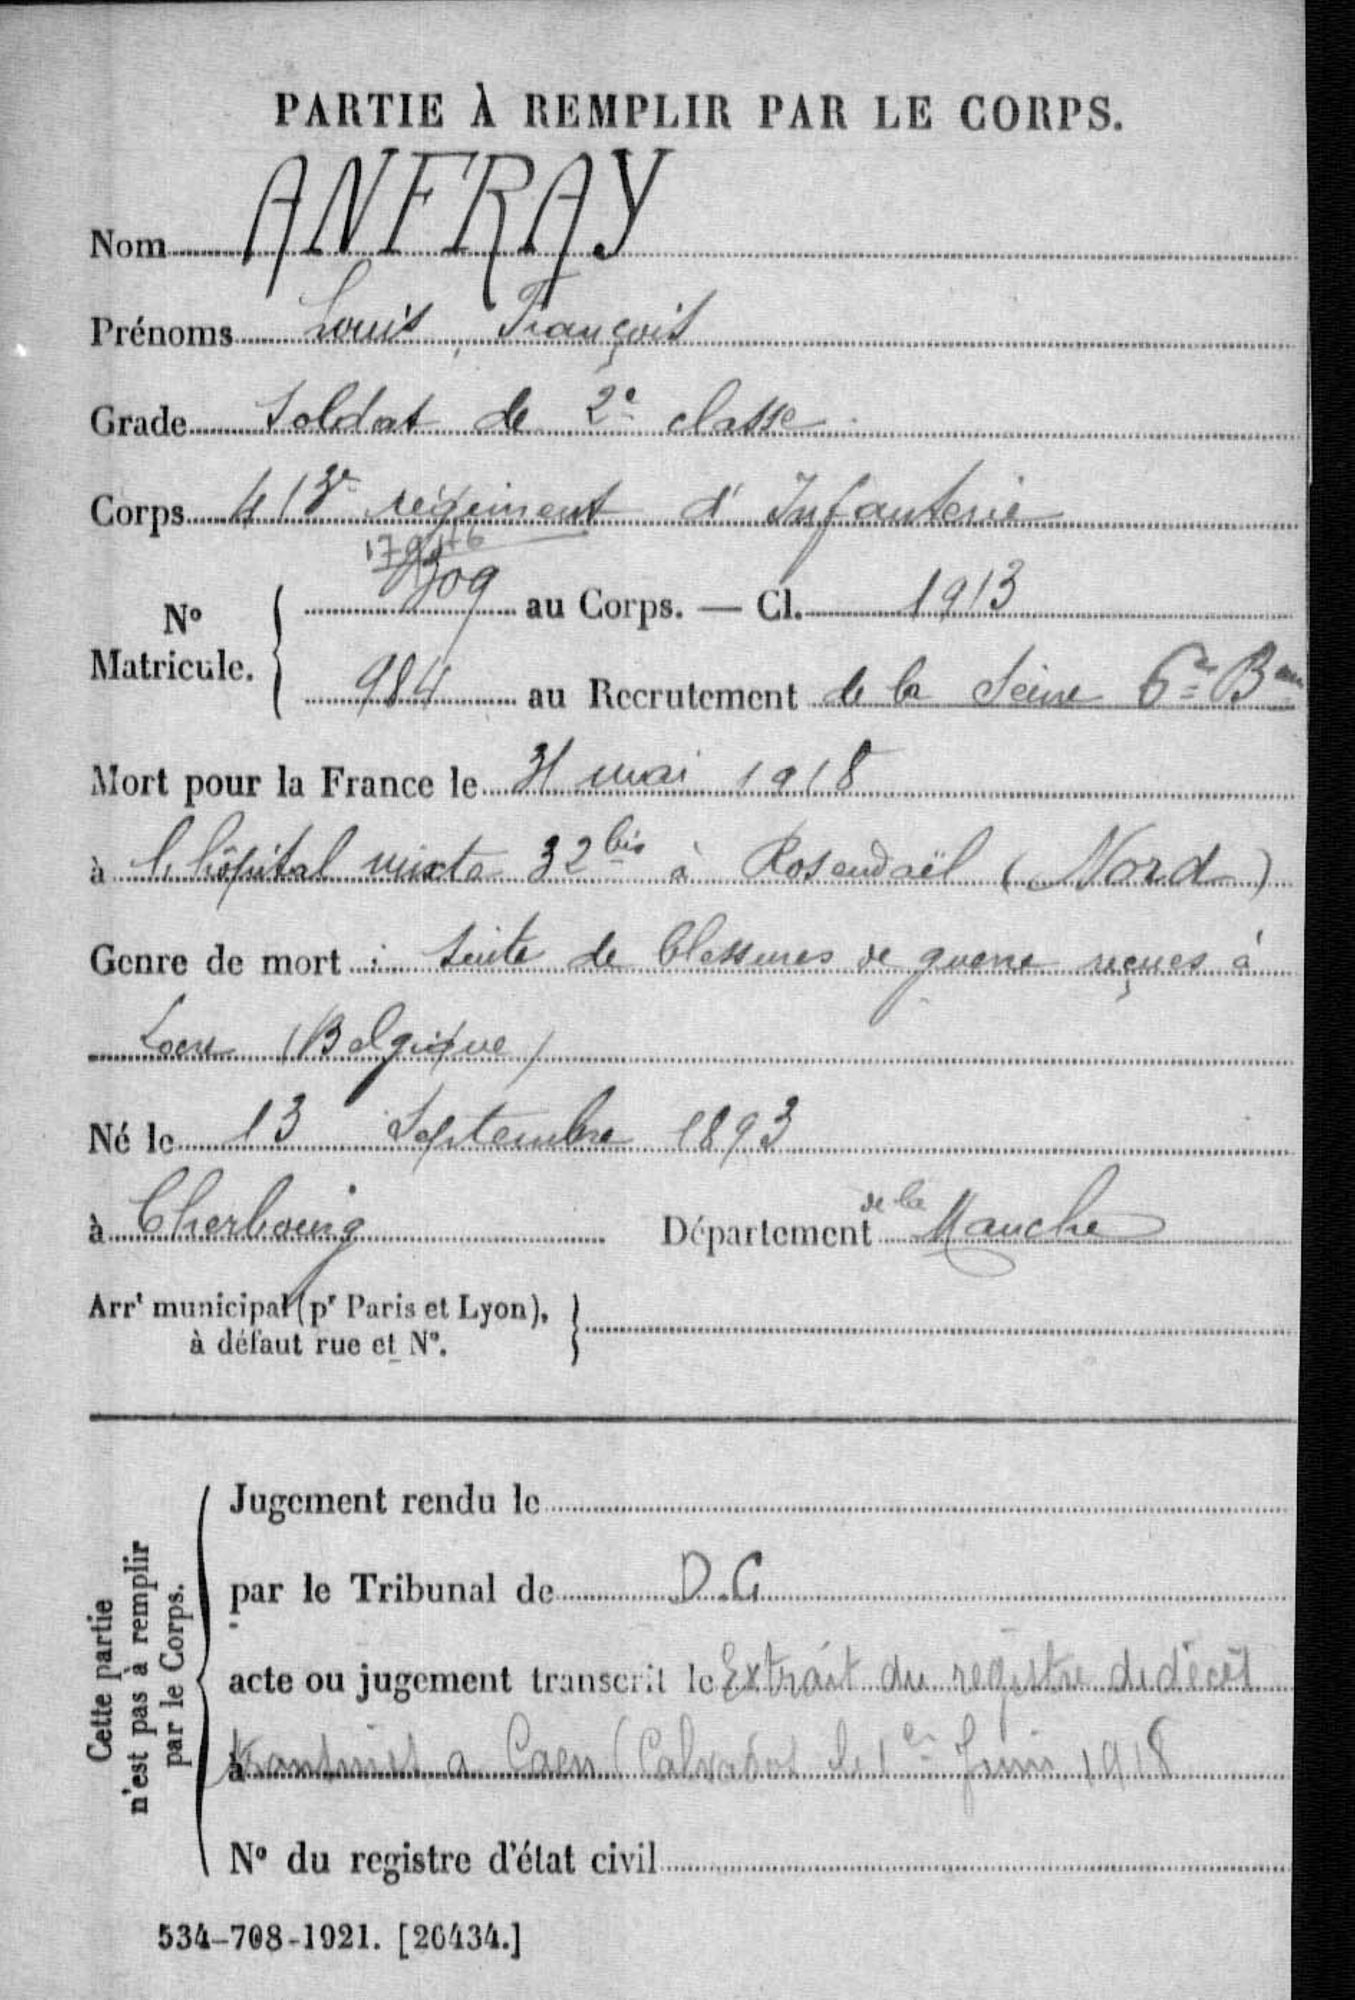 PARTIE À REMPLIR PAR LE CORPS.
Nom ANFRAY
Prénoms Louis, François
Grade Soldat de 2e classe
Corps 413e régiment d'Infanterie
N° Matricule. { 8309 au Corps. — Cl. 1913
984 au Recrutement de la Seine 6e Bau
Mort pour la France le 31 mai 1918
à l'hôpital mixte 32 bis à Rosendaël (Nord)
Genre de mort : suite de blessures de guerre reçues à
Locre (Belgique)
Né le 13 Septembre 1893
à Cherbourg Département de la Manche
Arrt municipal (pr Paris et Lyon), }
à défaut rue et N°.
Cette partie n'est pas à remplir par le Corps.
Jugement rendu le
par le Tribunal de D.C
acte ou jugement transcrit le Extrait du registre de décès
à transmis a Caen (Calvados le 1er Juin 1918
N° du registre d'état civil
534-708-1921. [26434.]